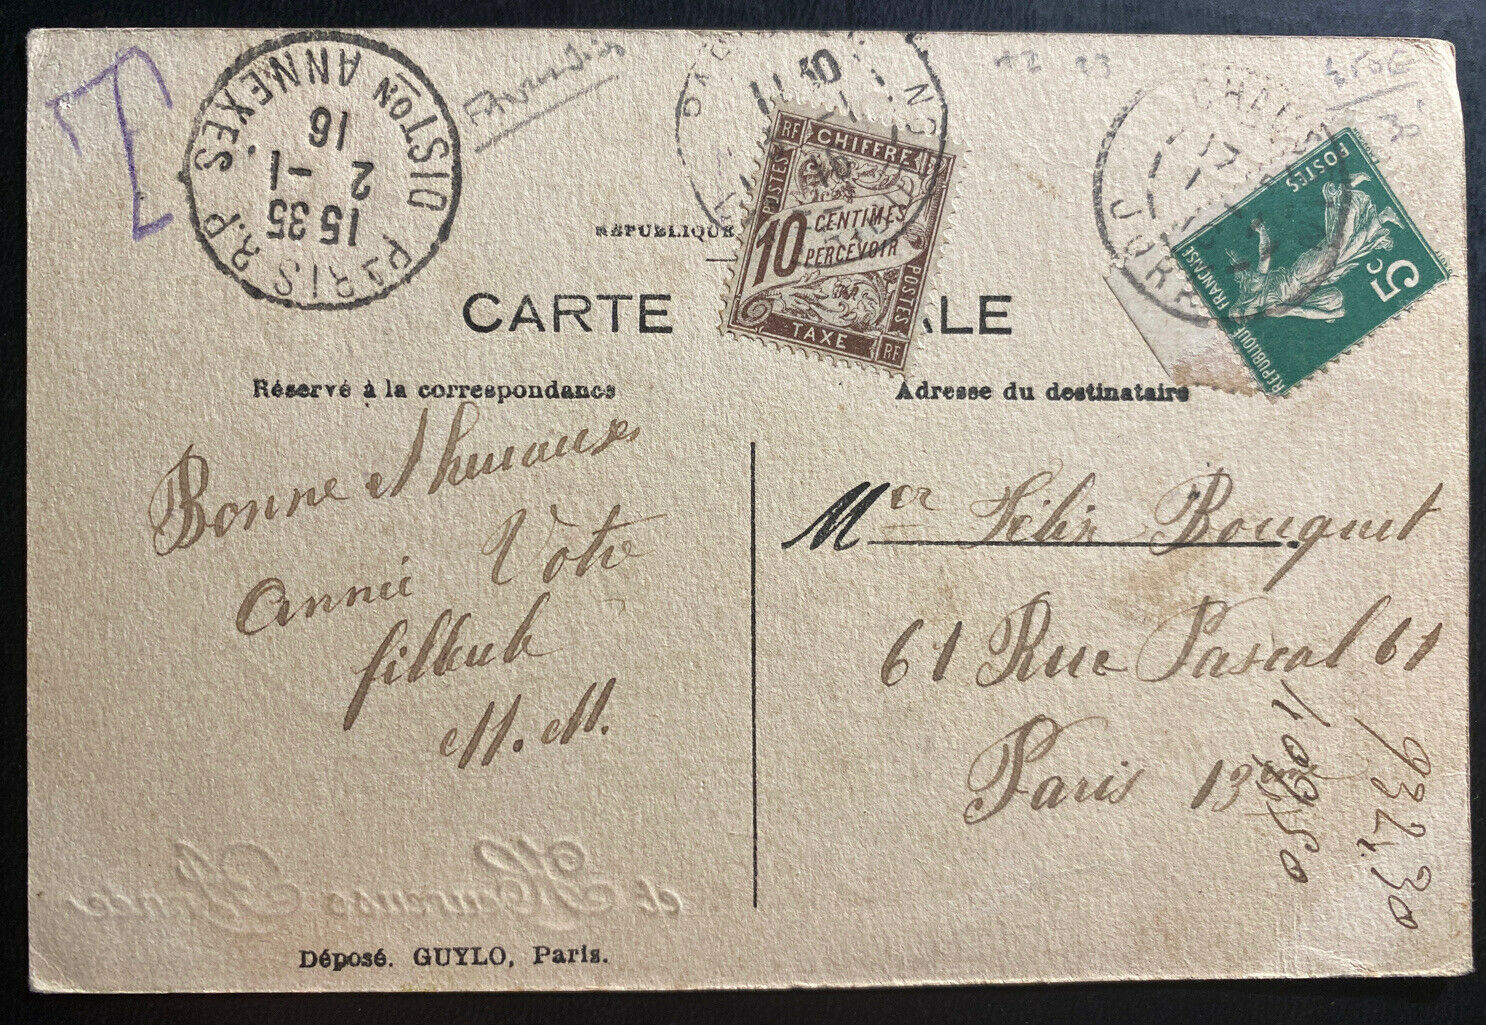 T
PARIS R.P. DISTON ANNEXES
15 35
2 -1
16
RF CHIFFRE RF
POSTES
10 CENTIMES
PERCEVOIR
POSTES
TAXE RF
POSTES
5c
REPUBLIQUE FRANÇAISE
REPUBLIQUE
CARTE ALE
Réservé à la correspondance
Adresse du destinataire
Bonne Année Votre
M. M.
Mer Félix Bouquet
61 Rue Pascal 61
Paris 13eme
10950
932.30
et Heureuse Année
Déposé. GUYLO, Paris.